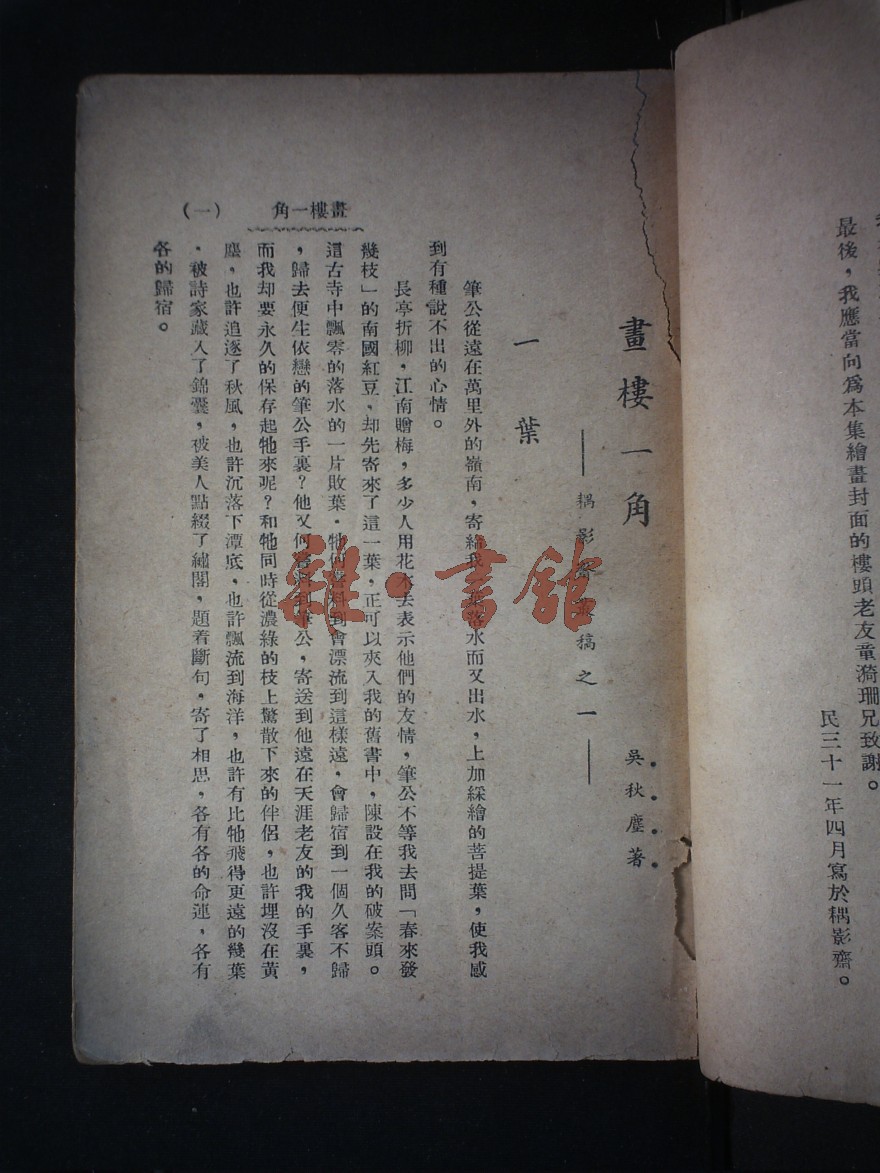 最後，我應當向爲本集繪畫封面的樓頭老友童漪珊兄致謝。
民三十一年四月寫於耦影齋。
畫樓一角
——耦影齋叢稿之一——
吳秋塵著
一葉
筆公從遠在萬里外的嶺南，寄給我一葉落水而又出水，上加綵繪的菩提葉，使我感
到有種說不出的心情。
長亭折柳，江南贈梅，多少人用花木去表示他們的友情，筆公不等我去問「春來發
幾枝」的南國紅豆，却先寄來了這一葉，正可以夾入我的舊書中，陳設在我的破案頭。
這古寺中飄零的落水的一片敗葉．牠何嘗料到會漂流到這樣遠，會歸宿到一個久客不歸
，歸去便生依戀的筆公手裏？他又何嘗料到筆公，寄送到他遠在天涯老友的我的手裏，
而我却要永久的保存起牠來呢？和牠同時從濃綠的枝上驚散下來的伴侶，也許埋沒在黃
塵，也許追逐了秋風，也許沉落下潭底，也許飄流到海洋，也許有比牠飛得更遠的幾葉
．被詩家藏入了錦囊，被美人點綴了繡閣，題着斷句，寄了相思，各有各的命運，各有
各的歸宿。
畫樓一角
（一）
雜·書館